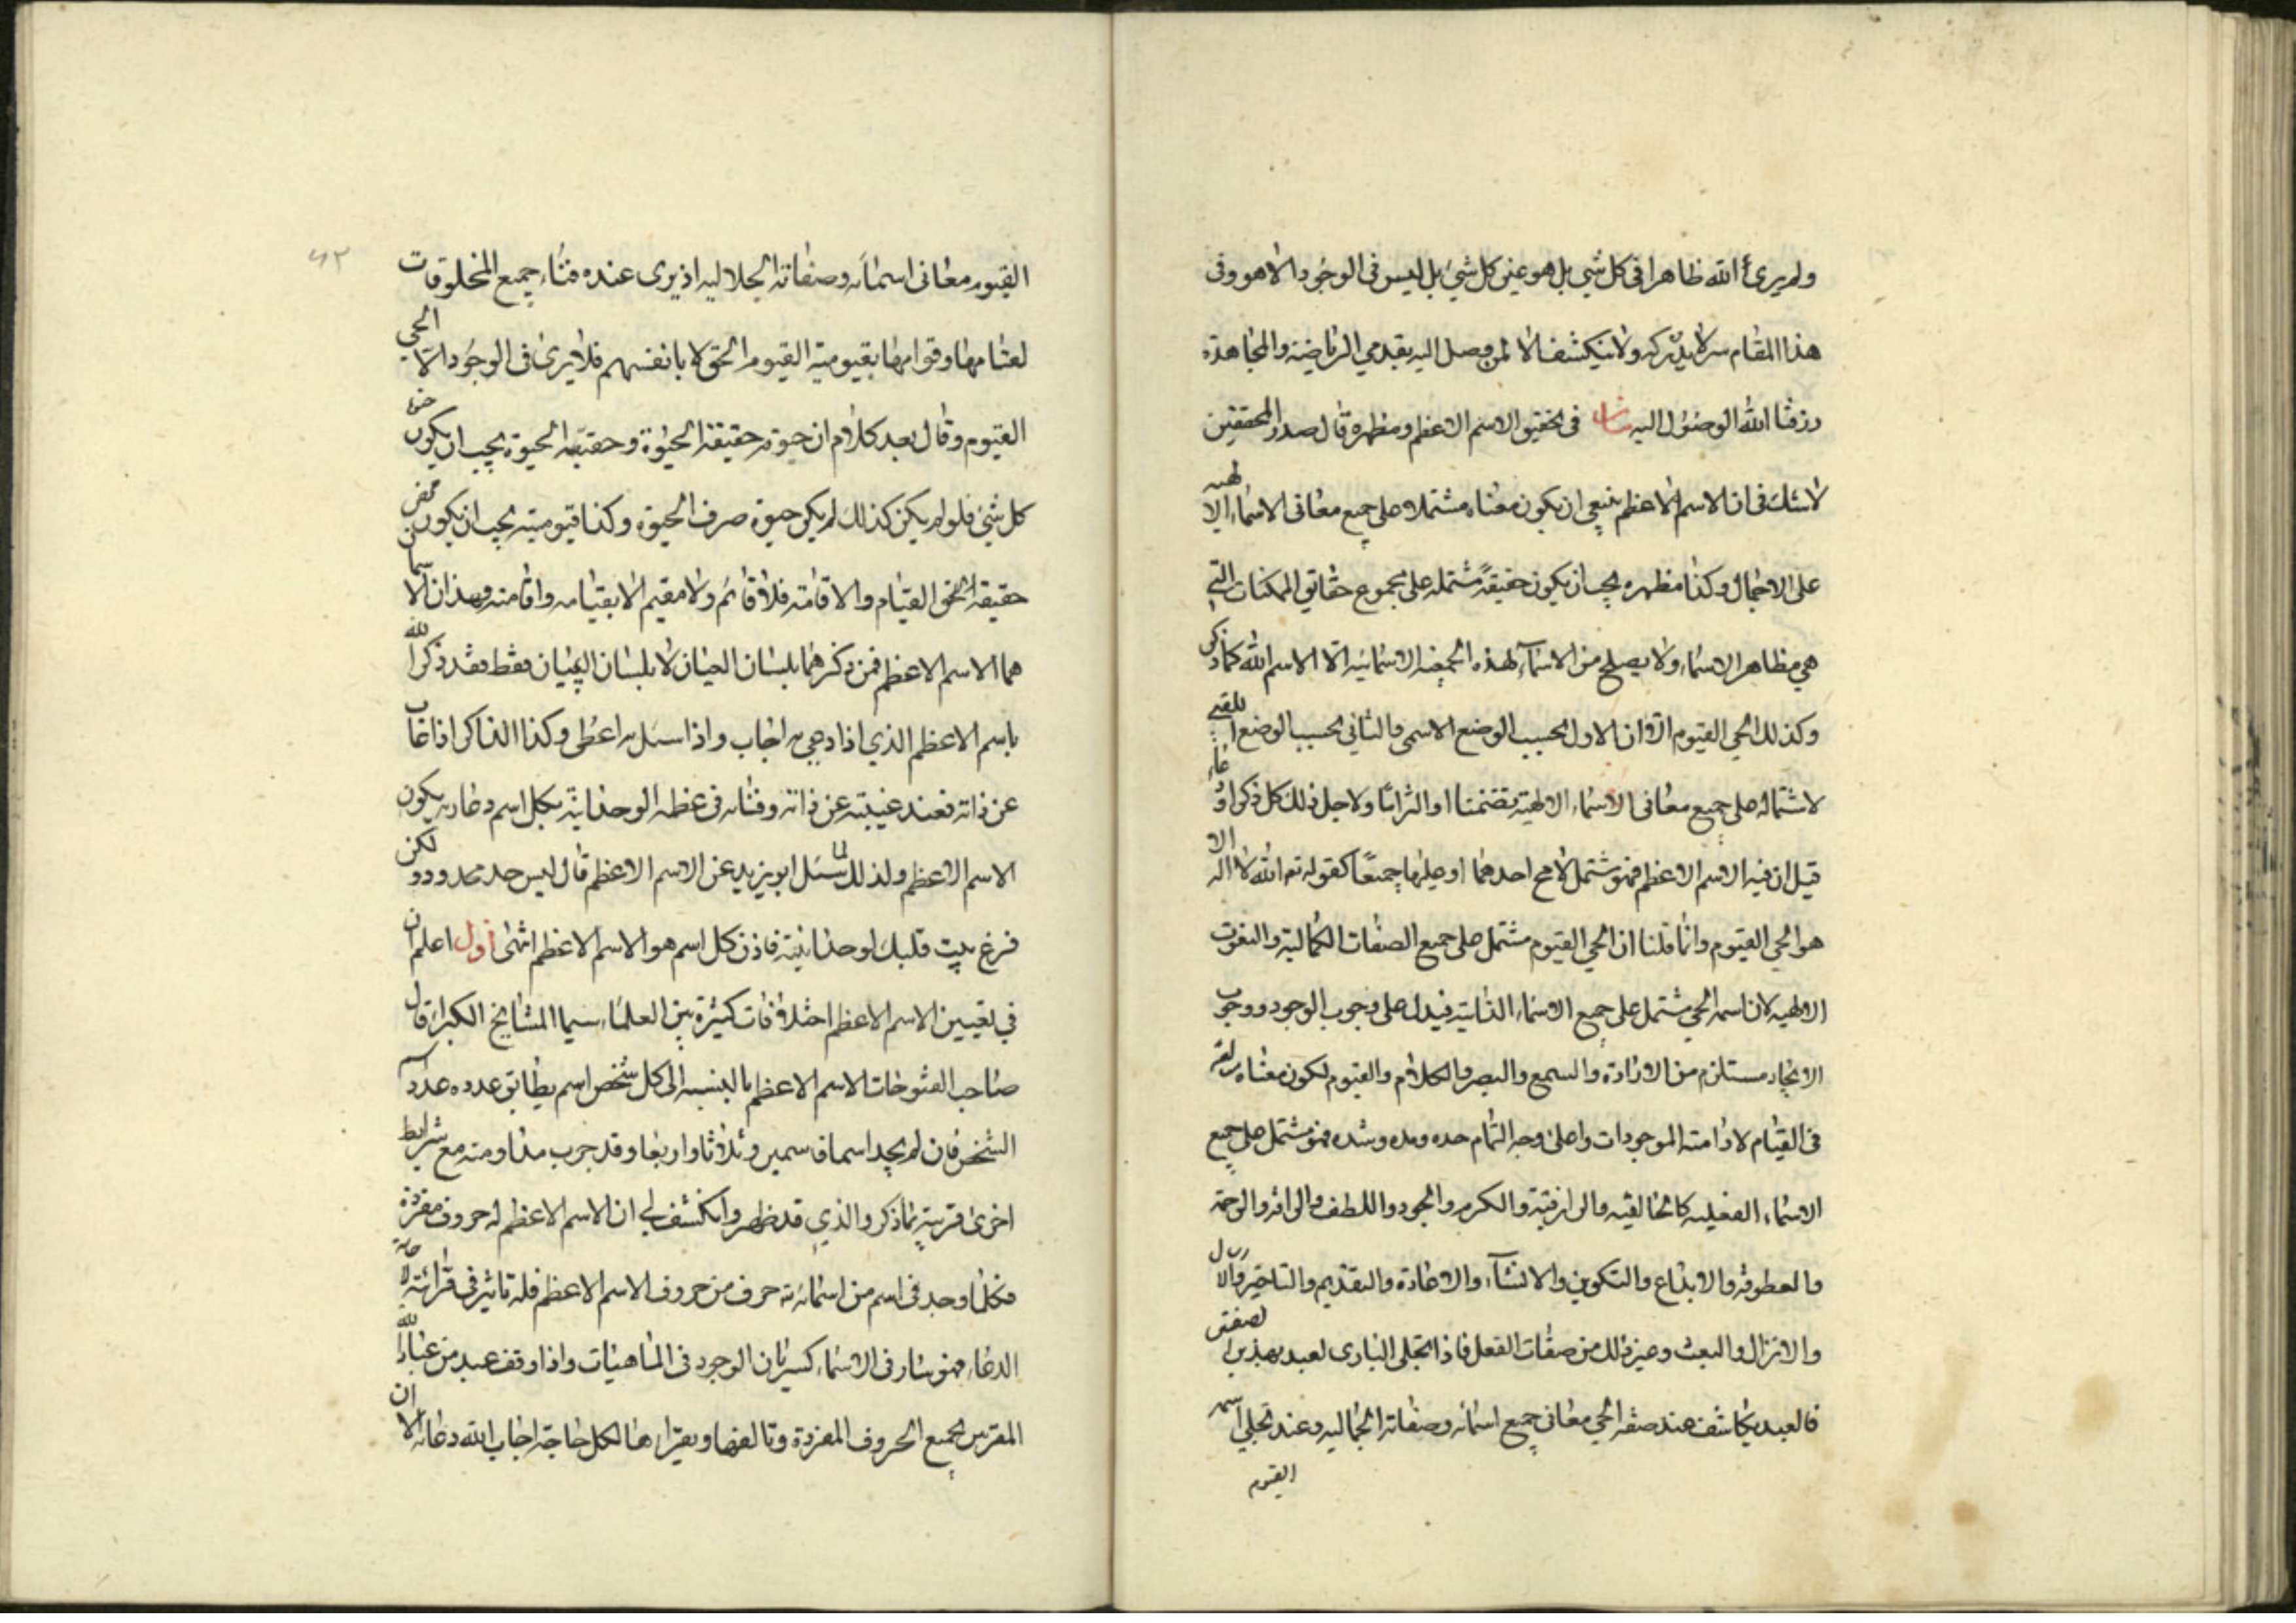 ولم يرى الله ظاهرا فى كل شي بل هو عين كل شئ بل ليس فى الوجود الا هو وفى
هذا المقام سر لا يدركه ولا ينكشف الا لمن وصل اليه بقدمي الرياضة والمجاهدة
رزقنا الله الوصول اليه فى تحقيق الاسم الاعظم ومظهره قال صدر المحققين
لا شك فى ان الاسم الاعظم ينبغي ان يكون معناه مشتملا على جميع معانى الاسماء الالهيه
على الاجمال وكذا مظهره يجب ان يكون حقيقة مشتمله على مجموع حقايق الممكنات التي
هي مظاهر الاسماء ولا يصلح من الاسماء لهذه الاسمائيه الا الاسم الله كما ذكر
وكذلك الحي القيوم الا ان الاول بحسب الوضع الاسمى والثاني بحسب الوضع
لاشتماله على جميع معانى الاسماء الالهية تضمنا او التزاما ولاجل ذلك كل ذكر او دعاء
قيل ان فيه الاسم الاعظم فهو مشتمل احدهما او جميعا كقوله تع الله لا اله الا
هو الحي القيوم وانما قلنا ان الحي القيوم مشتمل على جميع الصفات الكمالية والنعوت
الالهيه لان اسمه الحي مشتمل على جميع الاسماء الذاتية فيدل على وجوب الوجود ووجوب
الايجاد مستلزم من الارادة والسمع والبصر والكلام والقيوم لكون معناه
فى القيام لادامته الموجودات واعلى وجه التمام حده ومده وشده فهو مشتمل على جميع
الاسماء الفعليه كالخالقيه والرازقية والكرم والجود واللطف والرافه والرحمة
والعطوفه والابداع والتكوين والانشاء والاعادة والتقديم والتاخير
والانزال والبعث وغير ذلك من صفات الفعل فاذا تجلى البارى لعبد بهذين الصفتين
فالعبد يكاشف عند صفه الحي معانى جميع اسمائه وصفاته الجماليه وعند تجلي اسمه
القيوم
٤٢
القيوم معانى اسمائه وصفاته الجلاليه اذ يرى عنده فناء جميع المخلوقات
وقوامها بقيومية القيوم الحق لا بانفسهم فلا يرى فى الوجود الا الحي
القيوم وقال بعد كلام ان حيوته حقيقة الحيوة وحقيقه الحيوة يجب ان يكون
كل شئ فلو لم يكن كذلك لم يكن حيوة صرف الحيوة وكذا قيوميته يجب ان يكون محض
حقيقة القيام والاقامه فلا قائم ولا مقيم الا بقيامه واقامته وهذان الاسمان
هما الاسم الاعظم فمن ذكرهما بلسان لا بلسان فقط فقد ذكر الله
باسم الاعظم الذي اذا دعي به اجاب واذا سئل به اعطى وكذا الذاكر اذا غاب
عن ذاته فعند غيبته عن ذاته وفنائه فى عظمه الوحدانية بكل اسم دعا ربه يكون
الاسم الاعظم ولذلك لما سئل ابو يزيد عن الاسم الاعظم قال ليس حد محدود ولكن
فرغ بيت قلبك لوحدانيته فاذن كل اسم هو الاسم الاعظم انتهى اقول اعلم ان
في تعيين الاسم الاعظم اختلافات كثيرة بين العلماء سيما المشايخ الكبراء قال
صاحب الفتوحات الاسم الاعظم بالنسبه الى كل شخص اسم يطابق عدده عدد اسم
الشخص فان لم يجد اسما فاسمين وثلاثا واربعا وقد جرب مداومته مع شرايط
اخرى قريبة بما ذكر والذي قد ظهر وانكشف لي ان الاسم الاعظم له حروف مفردة
فكلما وجد فى اسم من اسمائه حرف من حروف الاسم الاعظم فله تاثير فى قرائته
الدعاء فهو سار فى الاسماء كسريان الوجود فى الماهيات واذا وقف عبد من عباد الله
المقربين لجميع الحروف المفردة وتاليفها ويقرا هذا لكل حاجة اجاب الله دعائه الا ان